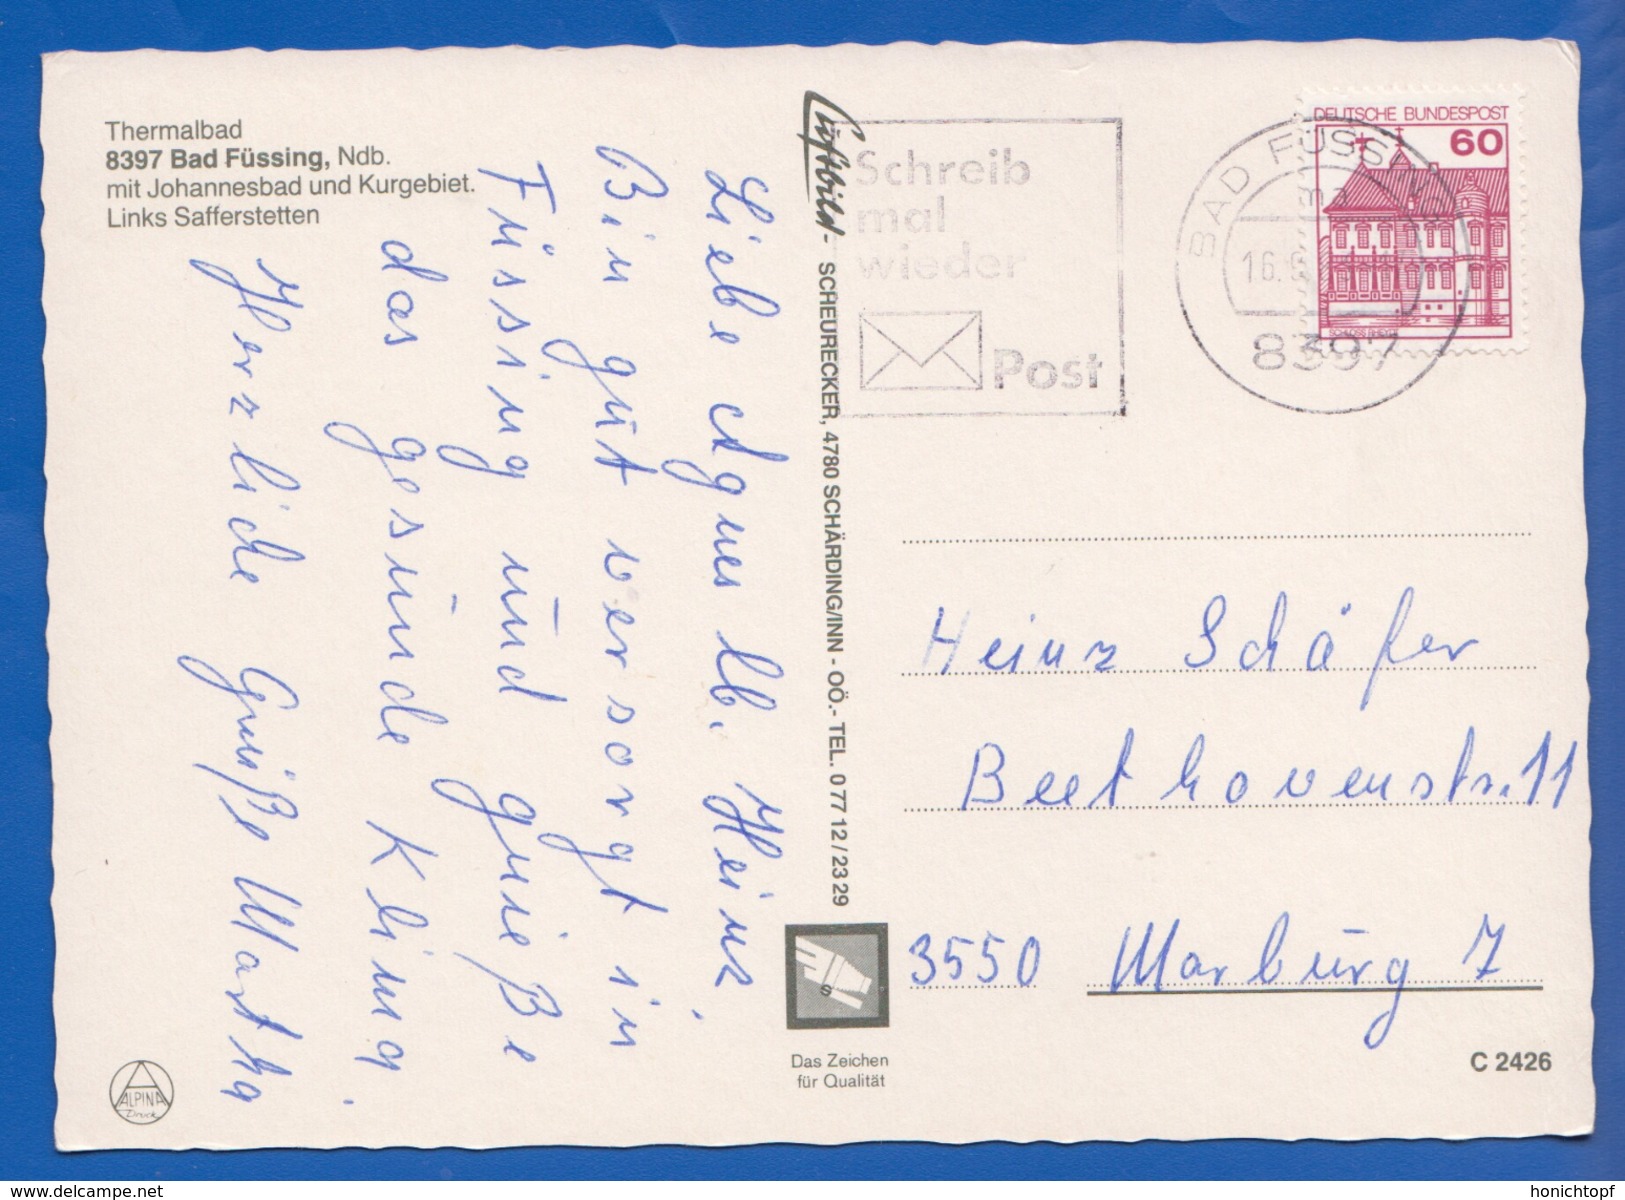 Thermalbad
8397 Bad Füssing, Ndb.
mit Johannesbad und Kurgebiet.
Links Safferstetten
Liebe Agnes lb. Heinz,
Bin gut versorgt in
Füssing und grüße
das gesunde Kling.
Herzliche Grüße Martha
Luftbild - SCHEURECKER, 4780 SCHÄRDING/INN - OÖ.- TEL. 0 77 12 / 23 29
Schreib
mal
wieder
Post
BAD FÜSSING
16.
8397
DEUTSCHE BUNDESPOST
60
Heinz Schäfer
Beethovenstr. 11
3550 Marburg 7
Das Zeichen
für Qualität
C 2426
ALPINA
Druck
delcampe.net
honichtopf